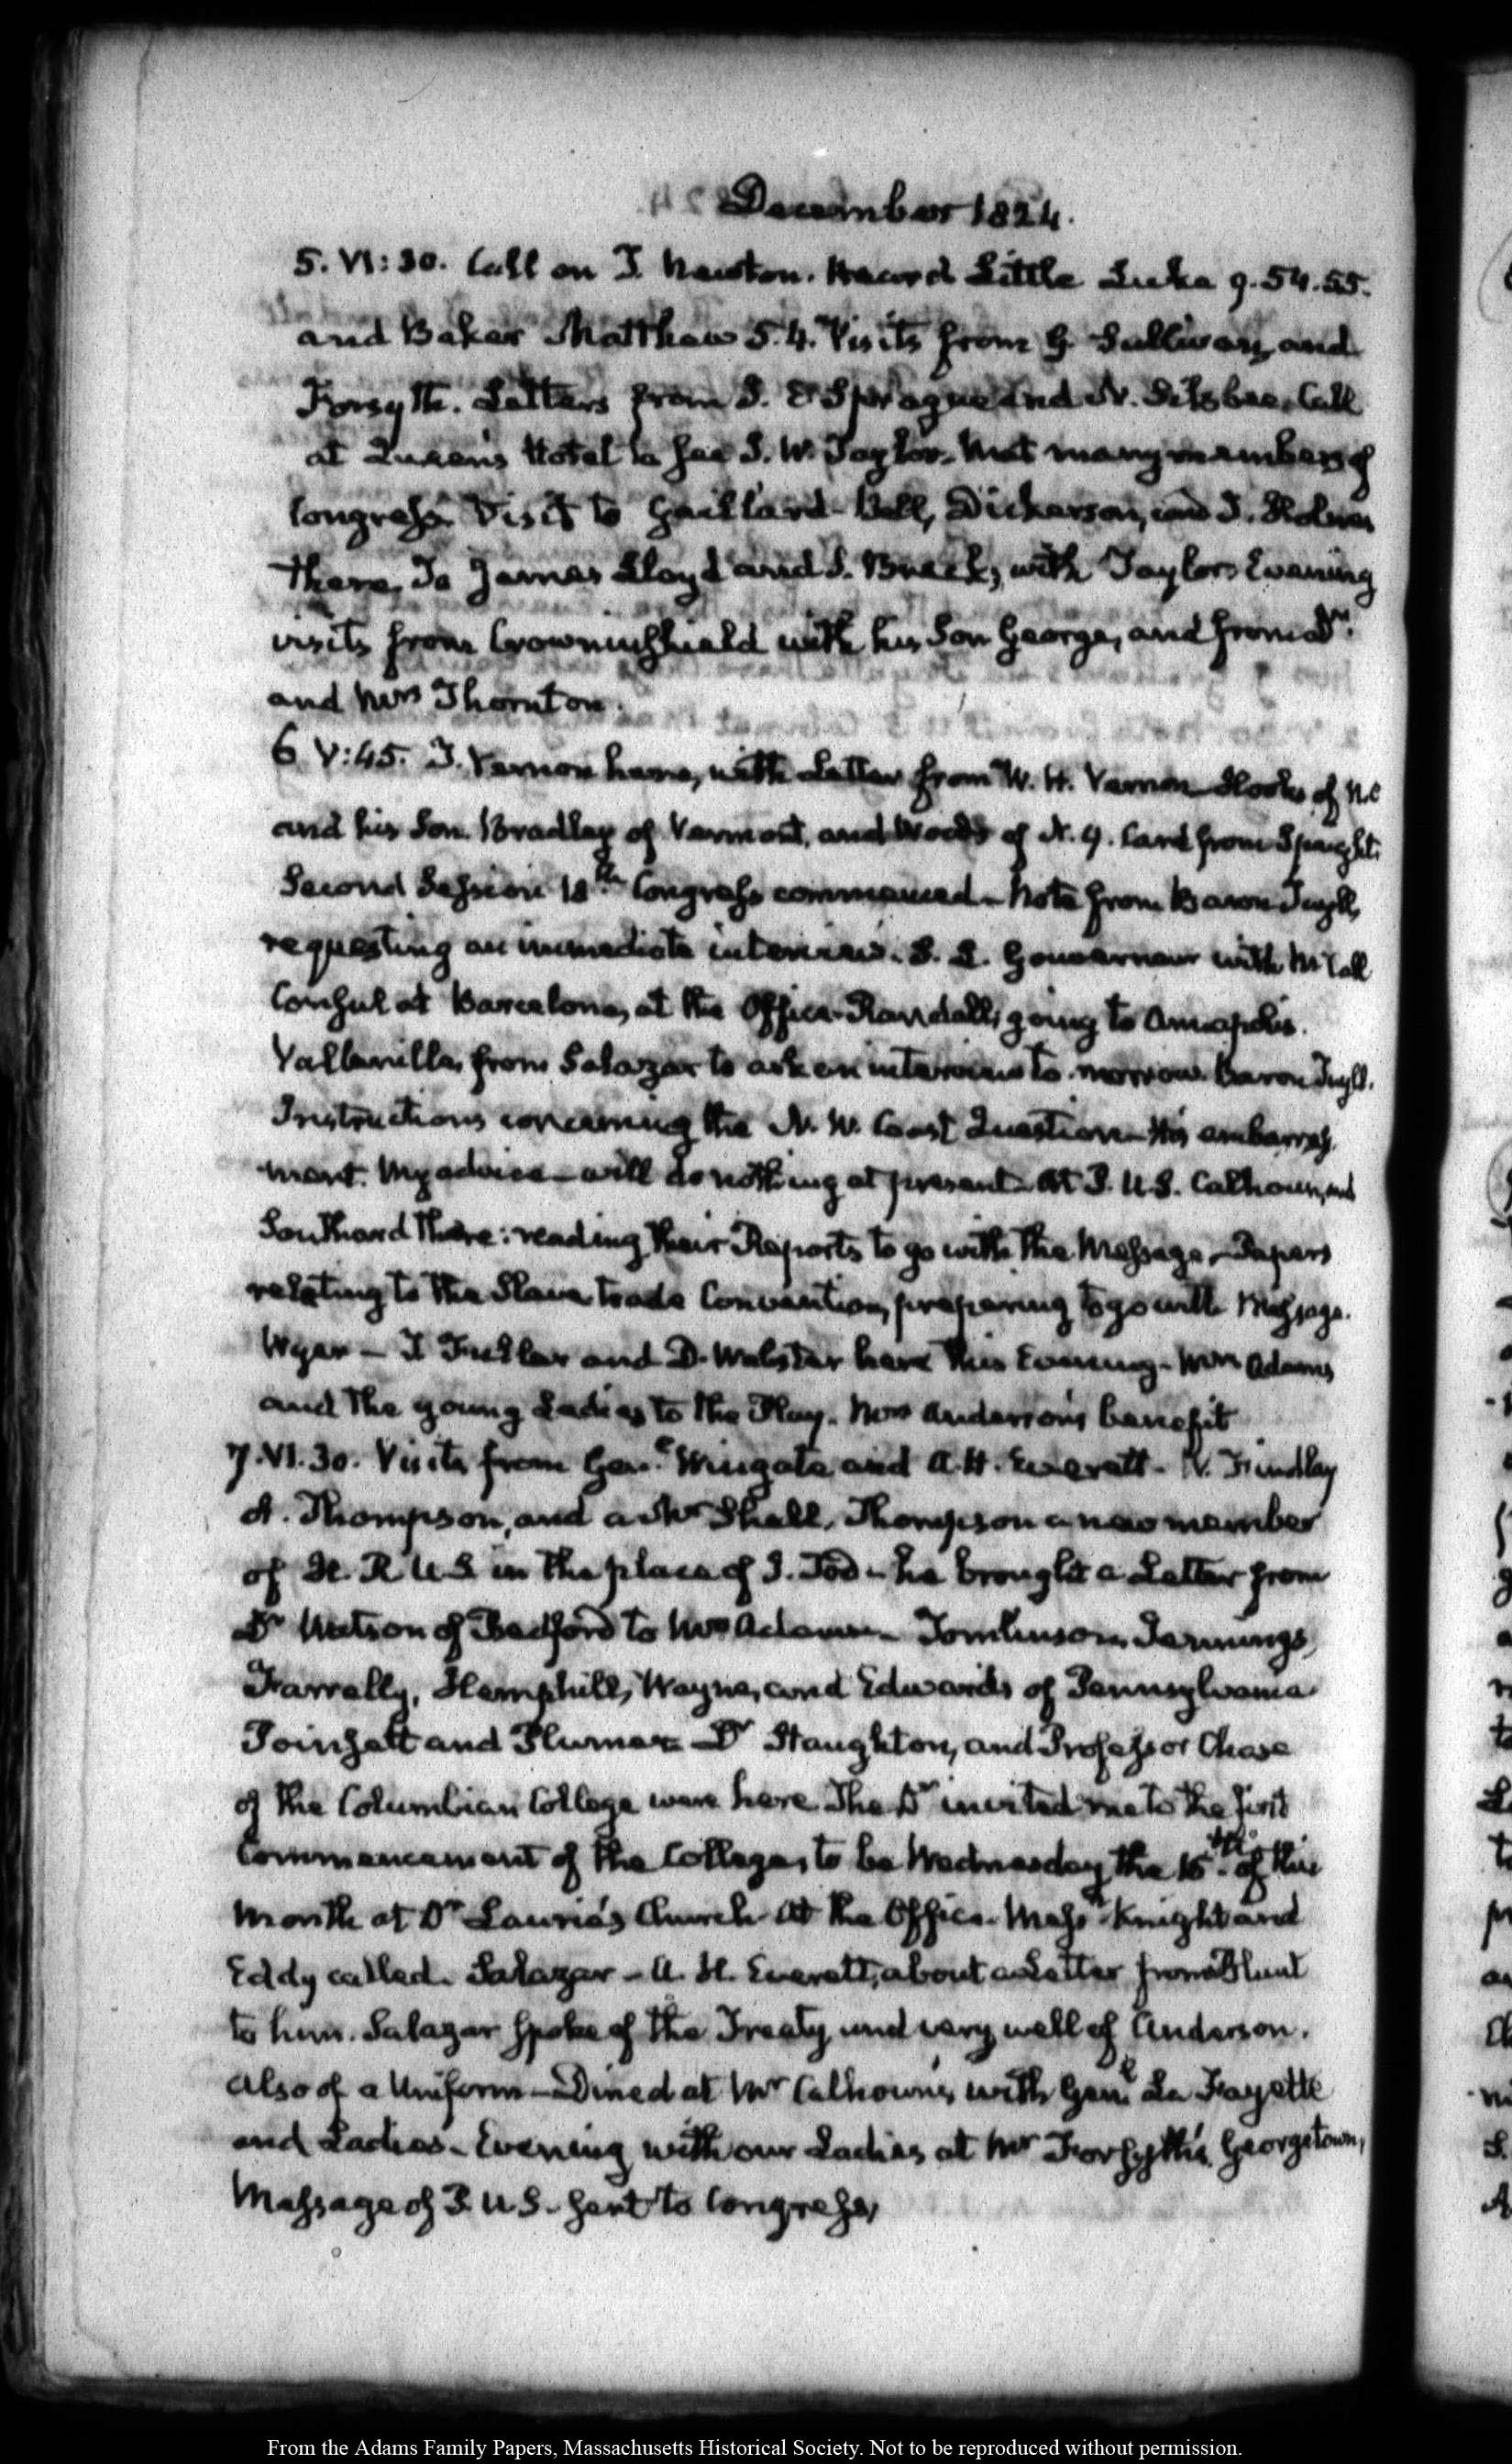 December 1824.
5. VI:30. Call on T. Newton. Heard Little Luke 9.54.55.
and Baker Matthew 5.4. Visits from G. Sullivan, and
Forsyth. Letters from J. E Sprague and N. Silsbee. Call
at Queen's Hotel to see J. W. Taylor. Met many members of
Congress. Visit to Gaillard. Bell, Dickerson, and J. Holmes
there. To James Lloyd and S. Breck, with Taylor. Evening
visits from Crowninshield with his Son George, and from Dr.
and Mrs Thornton.
6 V:45. T. Vernon here, with Letter from W. H. Vernon Hooks of N.C
and his Son. Bradley of Vermont, and Woods of N.Y. Card from Spaight.
Second Session 18th Congress commenced. Note from Baron Tuyll,
requesting an immediate interview. S. L. Gouverneur with McCall
Consul at Barcelona, at the Office. Randall, going to Annapolis.
Vallenilla, from Salazar to ask an interview to-morrow. Baron Tuyll.
Instructions concerning the N. W. Coast Question. His embarrass
ment. My advice—will do nothing at present. At P. U.S. Calhoun, and
Southard there: reading their Reports to go with the Message. Papers
relating to the Slave trade Convention, preparing to go with Message.
Wyer — T Fuller and D. Webster here this Evening. Mrs Adams
and the young Ladies to the Play. Mrs Anderson's benefit
7. VI.30. Visits from Genl. Wingate and A. H. Everett. W. Findlay
A. Thompson, and a Mr Shall. Thompson a new member
of H. R U.S in the place of J. Tod. he brought a Letter from
Dr Watson of Bedford to Mrs Adams. Tomlinson, Jennings,
Farrelly, Hemphill, Wayne, and Edwards of Pennsylvania
Poinsett and Plumer. Dr Staughton, and Professor Chase
of the Columbian College were here. The Dr invited me to the first
Commencement of the College, to be Wednesday the 15th. of this
Month at Dr Laurie's Church. At the Office. Messrs Knight and
Eddy called. Salazar - A. H. Everett, about a Letter from Blunt
to him. Salazar spoke of the Treaty, and very well of Anderson.
Also of a Uniform—Dined at Mr Calhoun's, with Genl La Fayette
and Ladies. Evening with our Ladies at Mr Forsyth's, Georgetown,
Message of P. U.S. sent to Congress,
From the Adams Family Papers, Massachusetts Historical Society. Not to be reproduced without permission.